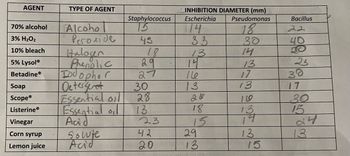 AGENT TYPE OF AGENT INHIBITION DIAMETER (mm)
Staphylococcus Escherichia Pseudomonas Bacillus
70% alcohol Alcohol 15 14 18 22
3% H₂O₂ Peroxide 45 33 30 40
10% bleach Halogen 18 13 14 20
5% Lysol* Phenolic 29 14 13 23
Betadine* Iodophor 27 16 17 30
Soap Detergent 30 13 13 17
Scope* Essential oil 28 20 16 30
Listerine* Essential oil 13 18 13 15
Vinegar Acid 23 15 19 24
Corn syrup Solute 42 29 13 13
Lemon juice Acid 20 13 15